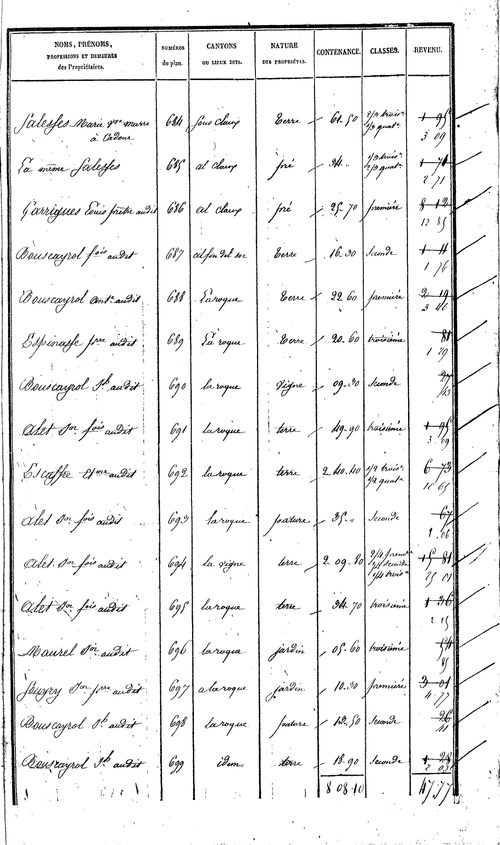 NOMS, PRÉNOMS, PROFESSIONS ET DEMEURES des Propriétaires. NUMÉROS du plan. CANTONS OU LIEUX DITS. NATURE DES PROPRIÉTÉS. CONTENANCE. CLASSES. REVENU.
Salesses Marie 684 Sous Claux terre 61.50 2/3 trois.e 1/3 quat.e 1 95
à Cadour 3 09
La même Salesses 685 al Claux pré 34. 1 71
2 71
Garrigues Louis prêtre audit 686 al Claux pré 25.70 première 8 12
12 85
Bouscayrol fois audit 687 terre 16.30 seconde 1 11
1 76
Bouscayrol audit 688 Laroque terre 22.60 première 2 19
3 46
Espinasse pre audit 689 La roque terre 20.60 troisième 81
1 29
Bouscayrol Jh audit 690 la roque vigne 09.30 seconde 27
43
Alet Jn fois audit 691 la roque terre 49.90 troisième 1 95
3 09
Escaffre audit 692 la roque terre 2.40.40 1/2 trois.e 1/2 quat.e 6 73
10 65
Alet Jn fois audit 693 la roque pature 35.. seconde 67
1 06
Alet Jn fois audit 694 la vigne terre 2.09.80 15 81
25 01
Alet Jn fois audit 695 la roque terre 34.70 troisième 1 36
2 15
Maurel Jn audit 696 la roque jardin 05.60 troisième 54
85
Jn pre audit 697 a la roque jardin 10.30 première 3 01
4 77
Bouscayrol Jh audit 698 la roque pature 13.50 seconde 26
41
Bouscayrol Jh audit 699 idem terre 18.90 seconde 1 28
2 03
8 08.10 47.77